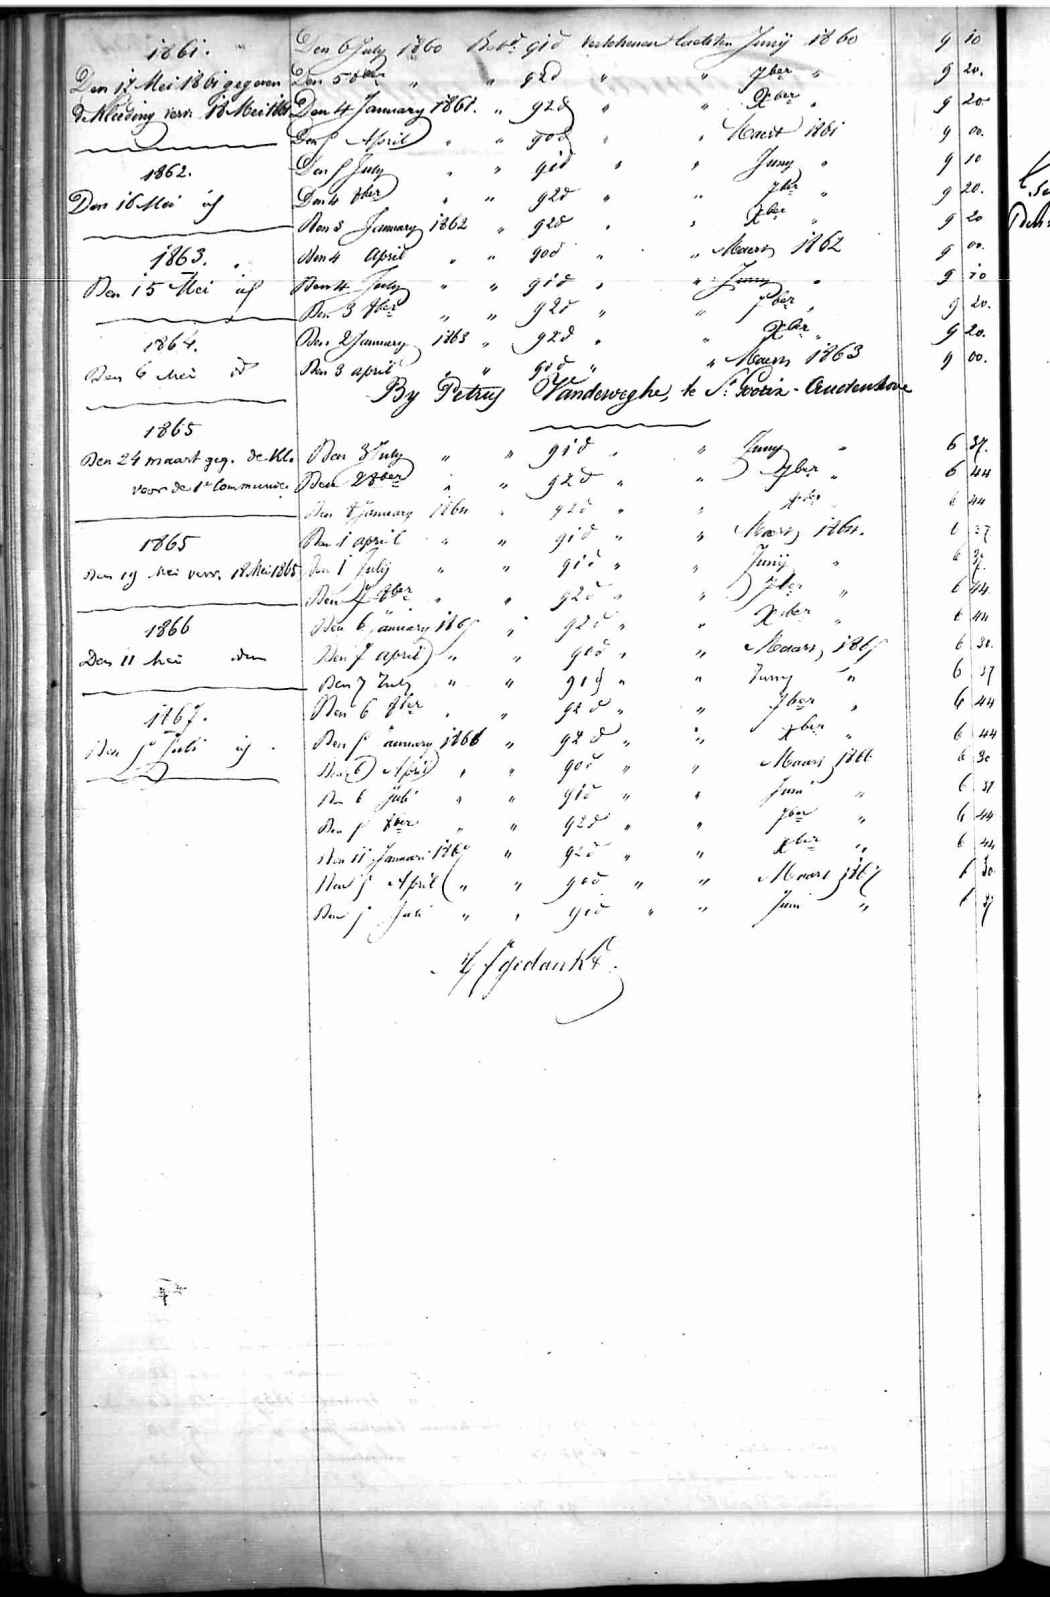 1861.
Den 17 Mei 1861 gegeven
de Kleeding verv. 18 Mei 1861
1862.
Den 16 Mei id
1863.
Den 15 Mei id
1864.
Den 6 Mei id
1865
Den 24 maart geg. de Kl.
voor de 1e Communie.
1865
Den 19 Mei verv. 18 Mei 1865
1866
Den 11 Mei idem
1867.
Den 5 Juli id.
Den 6 July 1860 Bet.d 91d verschenen laetsten Junij 1860 9 10
Den 5 8ber " " 92d " " 7ber " 9 20.
Den 4 January 1861. " 92d " " Xber " 9 20
Den 5 April " " 90d " " Maert 1861 9 00.
Den 5 July " " 91d " " Juny " 9 10
Den 4 8ber " " 92d " " 7ber " 9 20.
Den 3 January 1862 " 92d " " Xber " 9 20
Den 4 April " " 90d " " Maers 1862 9 00.
Den 4 July " " 91d " " Juny " 9 10
Den 3 8ber " " 92d " " 7ber " 9 20.
Den 2 January 1863 " 92d " " Xber " 9 20.
Den 3 april " " 90d " " Maers 1863 9 00.
By Petrus Vandeweghe, te St. Goorix-Audenhove
Den 3 July " " 91d " " Juny " 6 37.
Den 2 8ber " " 92d " " 7ber " 6 44
Den January 1864 " 92d " " Xber " 6 44
Den 1 april " " 91d " " Maers 1864. 6 37
Den 1 July " " 91d " " Junij " 6 37.
Den 7 8ber " " 92d " " 7ber " 6 44.
Den 6 january 1865 " 92d " " Xber " 6 44
Den 7 april " " 90d " " Maars 1865 6 30.
Den 7 July " " 91d " " Juny " 6 37
Den 6 8ber " " 92d " " 7ber " 6 44
Den 5 january 1866 " 92d " " Xber " 6 44
Den 6 April " " 90d " " Maars 1866 6 30
Den 6 Juli " " 91d " " Juni " 6 37
Den 5 8ber " " 92d " " 7ber " 6 44
Den 11 Januari 1867 " 92d " " Xber " 6 44
Den 5 April " " 90d " " Maars 1867 6 30
Den 5 Juli " " 91d " " Juni " 6 37
Afgedankt.